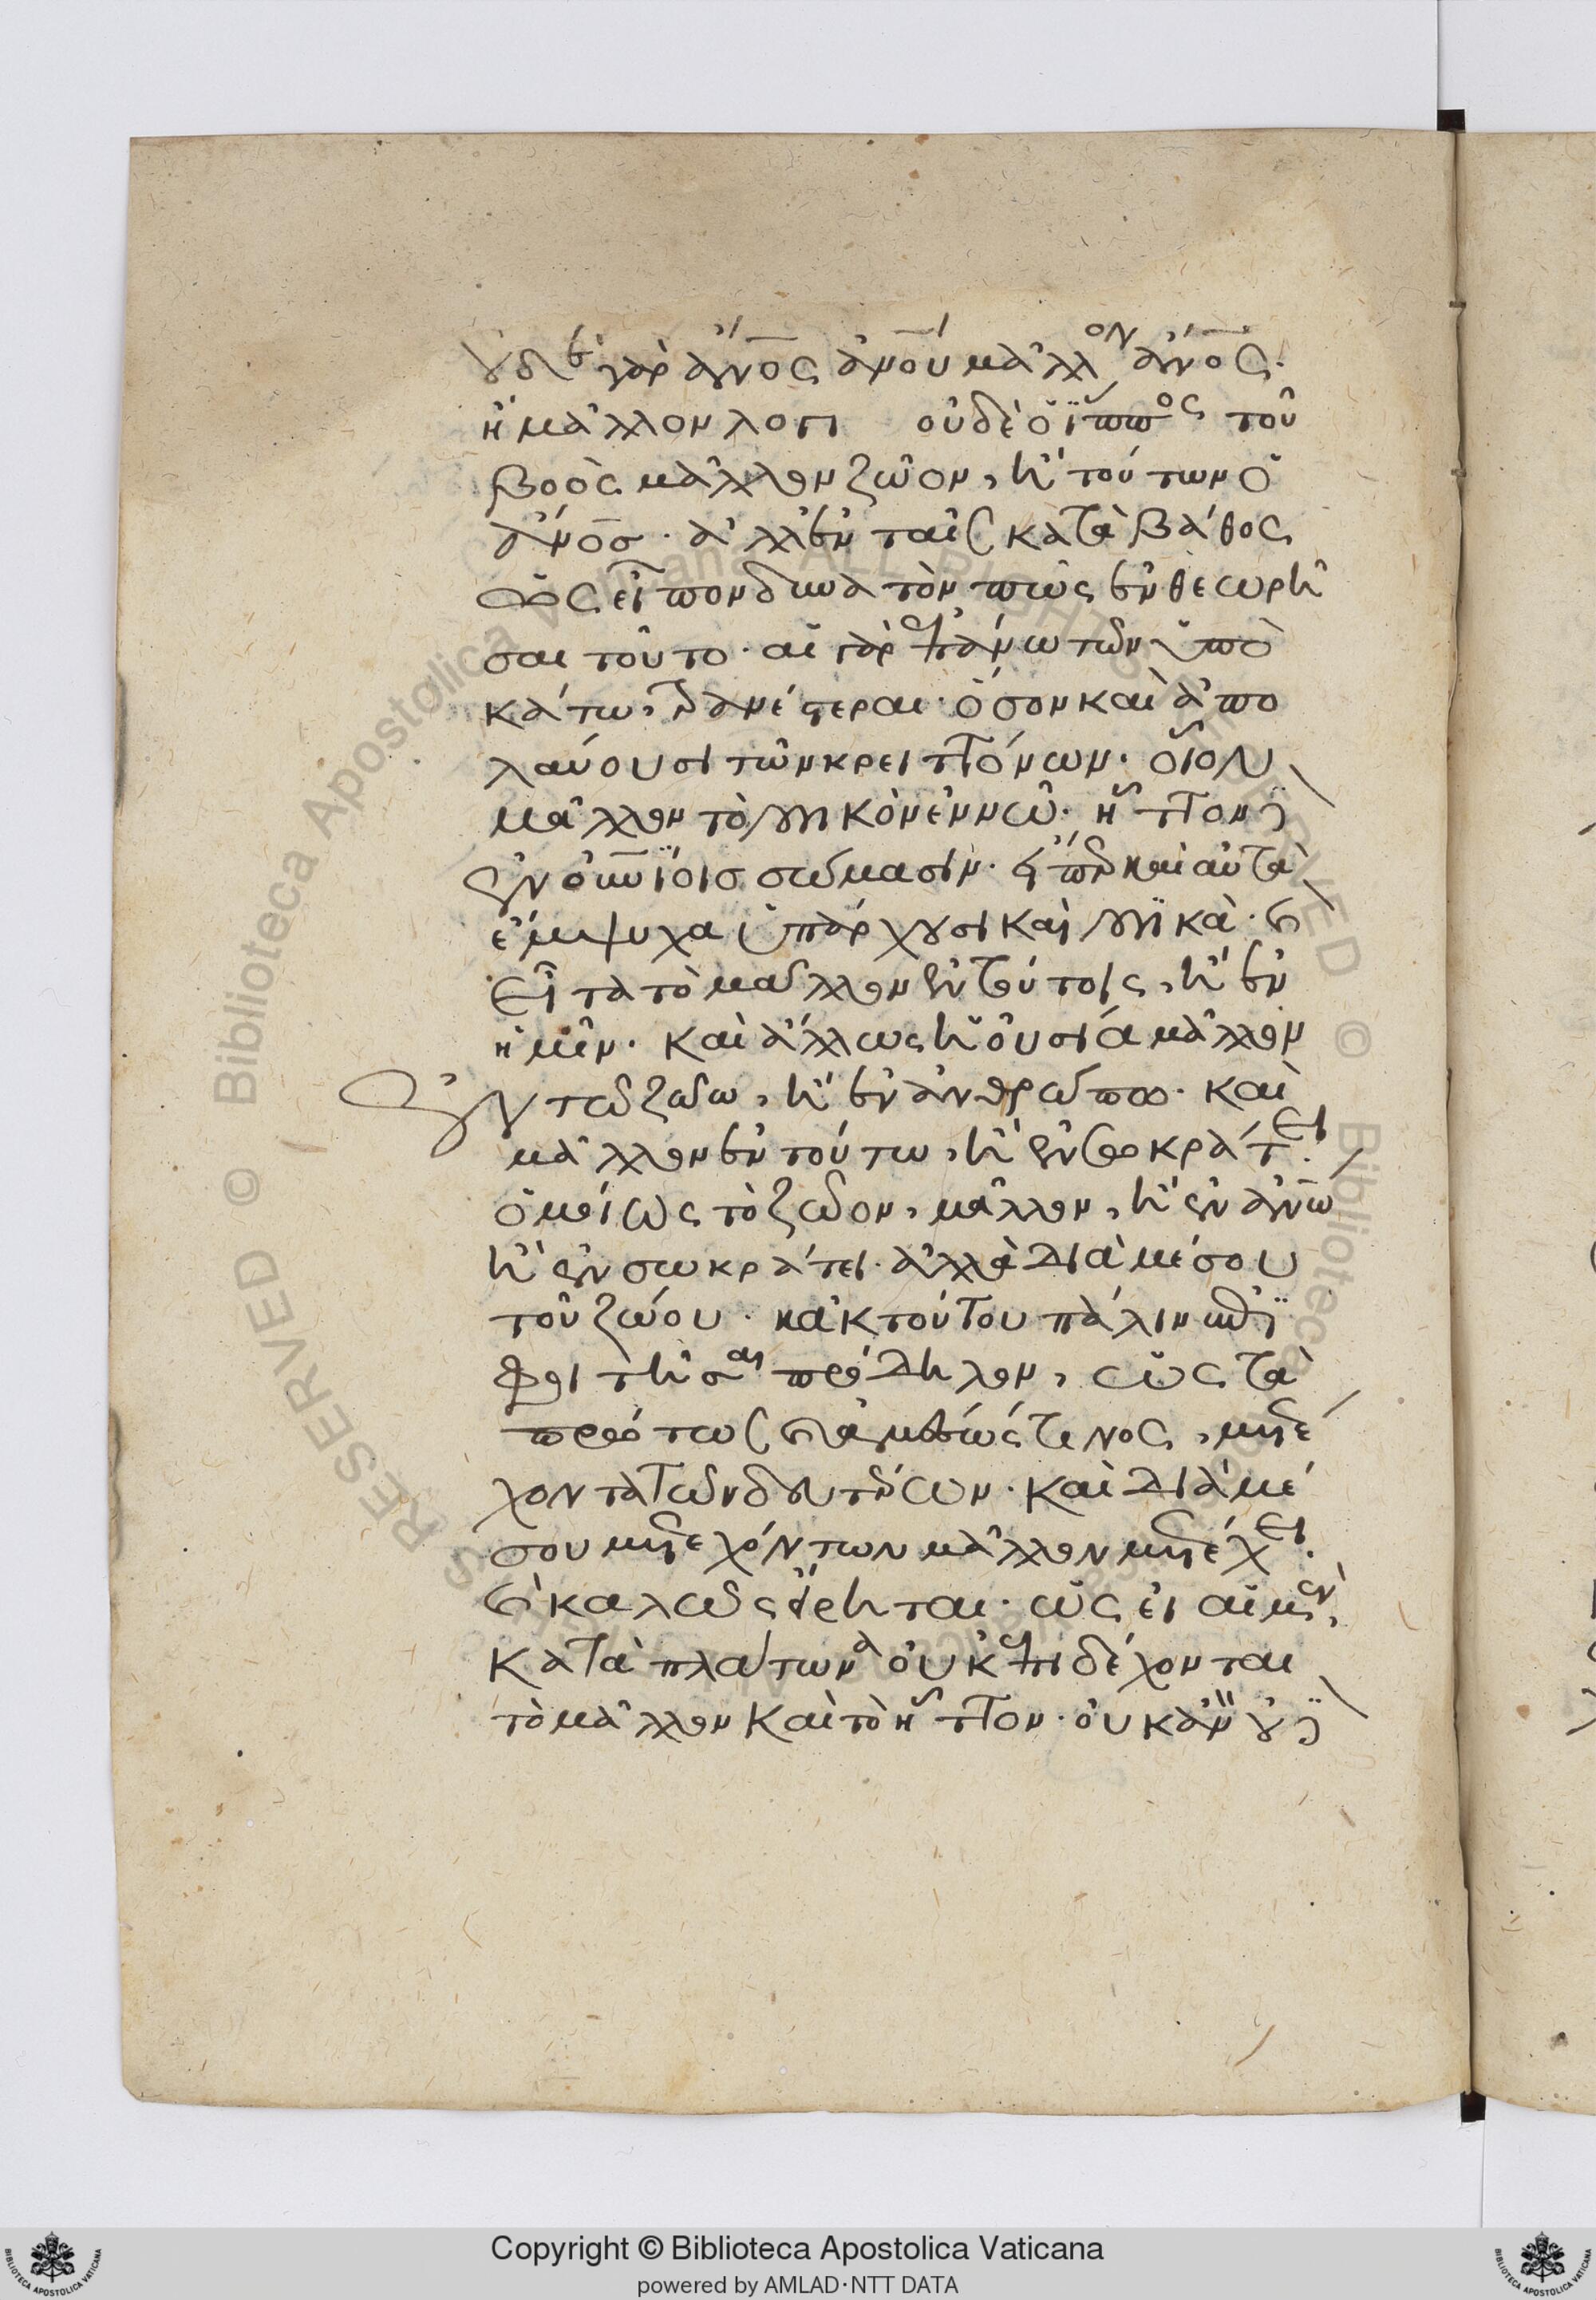 οὐδὲ γὰρ ἄνος ἀνου μᾶλλον ἄνος.
ἢ μᾶλλον λογι οὐδὲ ὁ ἵππος τοῦ
βοὸς μᾶλλον ζῶον, ἢ τούτων ὁ
ἄνος. ἀλλ' ἐν ταῖς κατὰ βάθος
ὡς εἶπον δυνατόν πως ἐνθεωρῆ
σαι τοῦτο. αἱ γὰρ ἐπάνω τῶν ὑπὸ
κάτω, ἀπο
λαύουσι τῶν κρειττόνων. οἷον
μᾶλλον τὸ λογικὸν ἐν νῷ. ἧττον
ἐν οὐνίοις σώμασιν. εἴπερ καὶ αὐτὰ
ἔμψυχα ὑπάρχουσι καὶ λογικὰ.
εἶτα τὸ μᾶλλον ἐν τούτοις, ἢ ἐν
ἡμῖν. καὶ ἄλλως ἡ οὐσία μᾶλλον
ἐν τῷ ζώω, ἢ ἐν ἀνθρώπω. καὶ
μᾶλλον ἐν τούτω, ἢ ἐν σωκράτει.
ὁμοίως τὸ ζῶον, μᾶλλον, ἢ ἐν ἀνω
ἢ ἐν σωκράτει. ἀλλὰ διὰ μέσου
τοῦ ζώου. κἀκ τούτου πάλιν
πρόδηλον, ὡς τὰ
πρώτως τινος, μετέ
χοντα τῶν δευτέρων. καὶ διὰ μέ
σου μετεχόντων μᾶλλον μετέχει.
καλῶς εἴρηται. ὡς εἰ αἱ μὲν,
κατὰ πλάτων οὐκ ἐπιδέχονται
τὸ μᾶλλον καὶ τὸ ἧττον. οὐκ ἂν